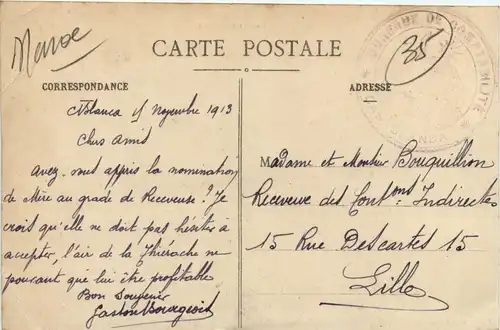 Maroc
CARTE POSTALE
35
CORRESPONDANCE
ADRESSE
Cablanca 15 Novembre 1913
Chers Amis
Avez-vous appris la nomination
de Mère au grade de Receveuse? Je
crois qu'elle ne doit pas hésiter à
accepter, l'air de la Thiérache ne
pouvant que lui être profitable
Bon Souvenir
Gaston Bourgeois
Madame et Monsieur Bouquillion
Receveur des Contons Indirectes
15 Rue Descartes 15
Lille